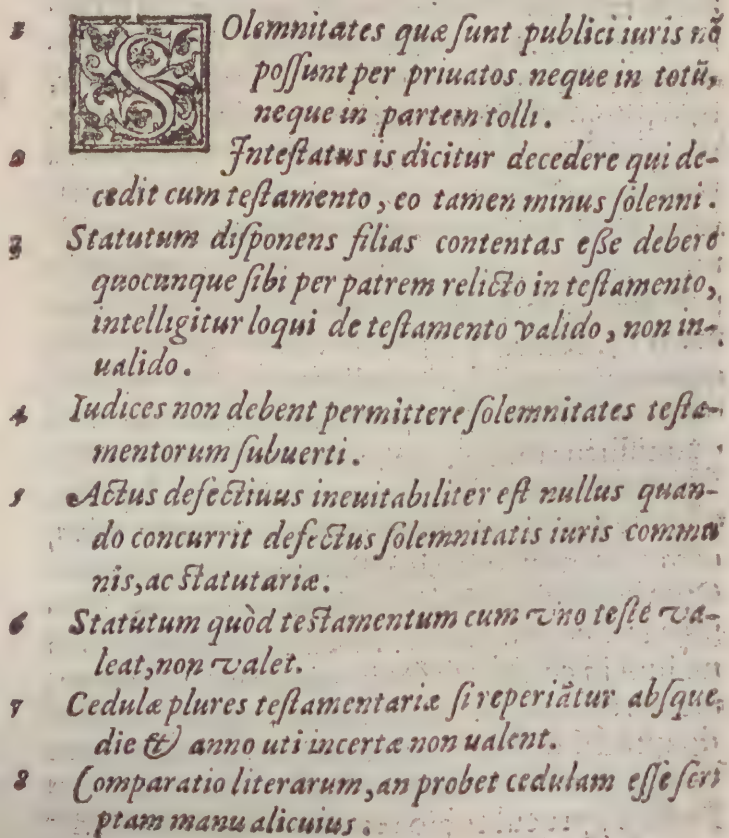 1 SOlemnitates quæ sunt publici iuris nō
possunt per priuatos neque in totū,
neque in partem tolli.
2 Intestatus is dicitur decedere qui de-
cedit cum testamento, eo tamen minus solenni.
3 Statutum disponens filias contentas esse debere
quocunque sibi per patrem relicto in testamento,
intelligitur loqui de testamento valido, non in-
ualido.
4 Iudices non debent permittere solemnitates testa-
mentorum subuerti.
5 Actus defectiuus ineuitabiliter est nullus quan-
do concurrit defectus solemnitatis iuris commu
nis, ac statutariæ.
6 Statutum quòd testamentum cum vno teste va-
leat, non valet.
7 Cedulæ plures testamentariæ si reperiātur absque
die & anno uti incertæ non ualent.
8 Comparatio literarum, an probet cedulam esse scri
ptam manu alicuius.